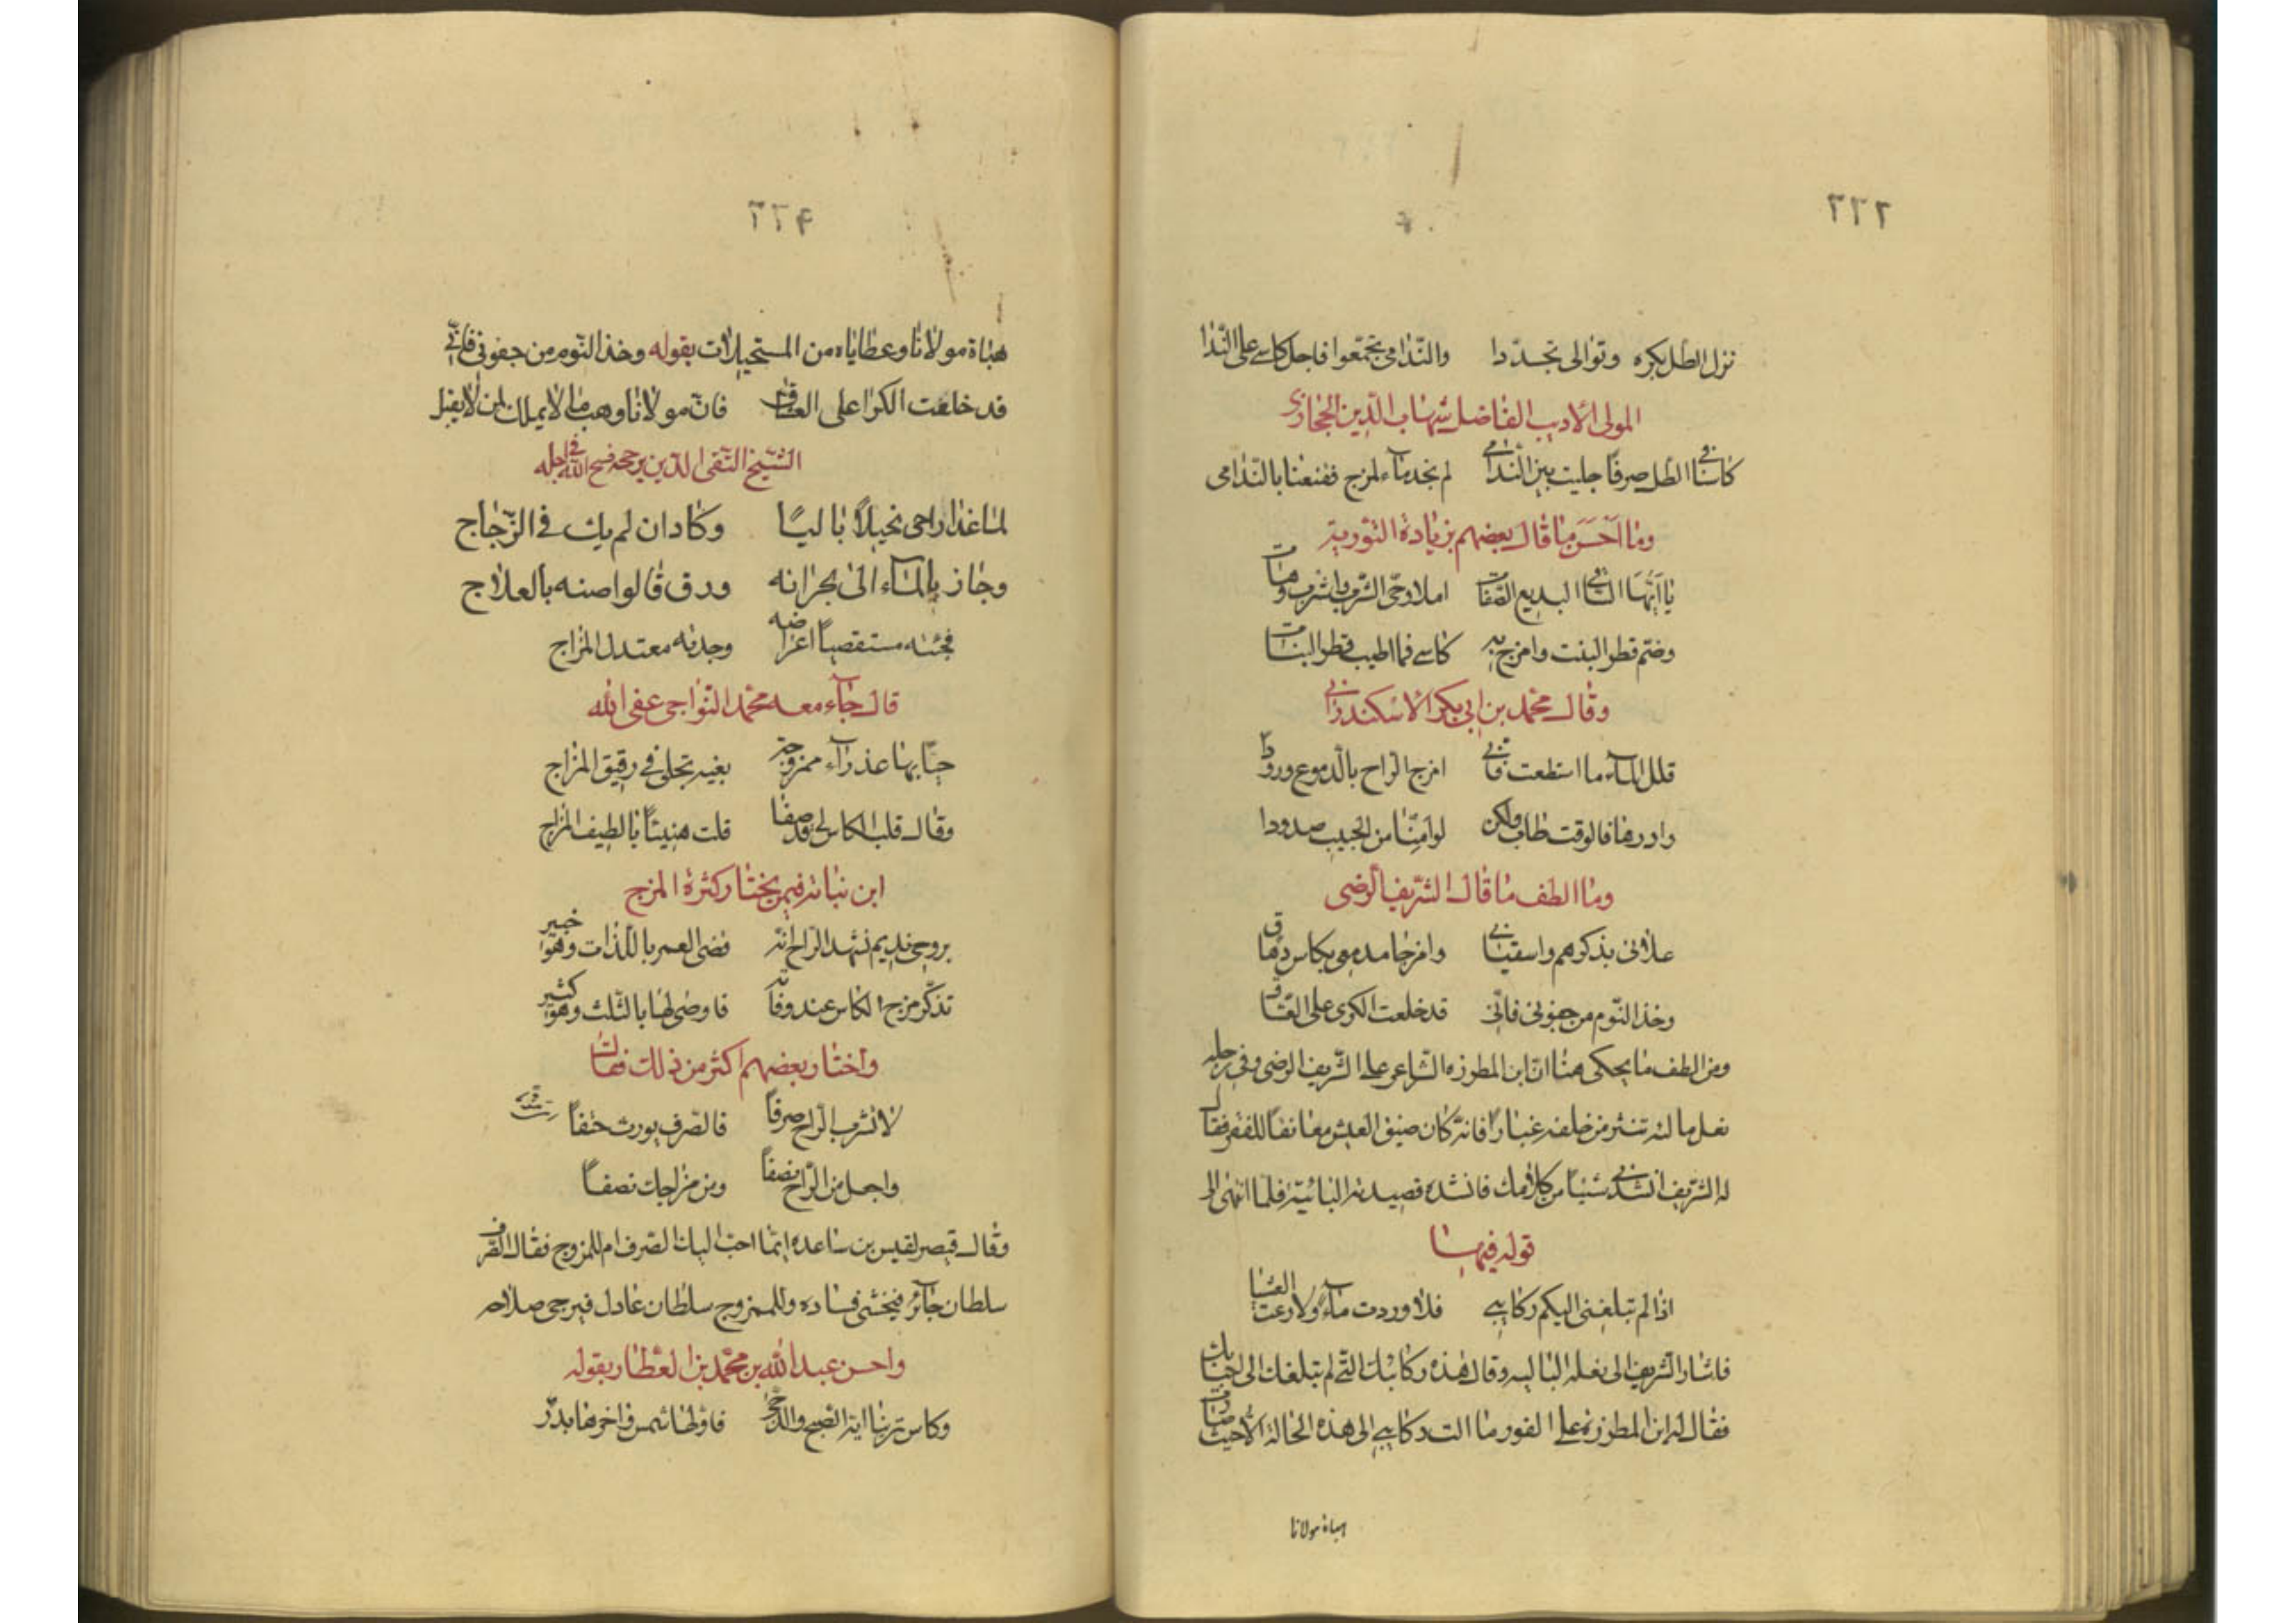 ٢٢٢
نزل الطل بكره وتوالى تجددا والندامى تجمعوا فاجل كاسي على الندا
المولى الاديب الفاضل شهاب الدين الحجازي
كاسنا في الطل صرفا جليت بين الندامى لم نجد ماء لمزج فقنعنا بالندامى
وما احسن ما قال بعضهم بزيادة التورية
يا ايها الساقي البديع الصفات املا وحي الشرب واشرب وهات
وضم قطر البنت وامزج به كاسي فما اطيب قطر البنات
وقال محمد بن ابي بكر الاسكندراني
قلل الماء ما استطعت فاني امزج الراح بالدموع ورودا
وادرها فالوقت طاب ولكن لو امنا من الحبيب صدودا
وما الطف ما قال الشريف الرضى
عللاني بذكرهم واسقياني وامزجا مدمعى بكاس دهاق
وخذ النوم من جفوني فاني قد خلعت الكرى على العشاق
ومن الطف ما يحكى هنا ان ابن المطرزه الشاعر على الشريف الرضى وفي رجليه
نعل مالته تنثر من خلفه غبارا فانه كان ضيق العيش معانقا للفقر فقال
له الشريف انشدني شيئا من كلامك فانشده قصيدته البائية فلما انتهى الى
قوله فيها
اذا لم تبلغني اليكم ركايبي فلا وردت ماء ولا رعت العشبا
فاشار الشريف الى نعله الباليه وقال هذه ركائبك التي لم تبلغك الى احبابك
فقال له ابن المطرزه على الفور ما الت ركايبي الى هذه الحالة الا حيث صارت
هباة مولانا
٢٢٤
هباة مولانا وعطاياه من المستحيلات بقوله وخذ النوم من جفوني فاني
قد خلعت الكرا على العشاق فان مولانا وهب ما لا يملك لمن لا يقبل
الشيخ التقى الدين بن حجه فسح الله في اجله
لما غدا راحي نحيلا باليا وكاد ان لم يك في الزجاج
وجاز بالماء الى بحرانه ورق قالوا صنه بالعلاج
فجئته مستقصيا اعراضه وجدته معتدل المزاج
قال جاء معه محمد النواجى عفى الله
جنا بها عذراء ممزوجة بغيه تجلى في رقيق المزاج
وقال قلب الكاس لى قد صفا قلت هنيئا يا لطيف المزاج
ابن نباته فيمن يختار كثرة المزج
بروحي نديم تشهد الراح انه قضى العمر باللذات وهو خبير
تذكر مزج الكاس عند وفاته فاوصى لها بالثلث وهو كثير
واختار بعضهم اكثر من ذلك فقال
لا تشرب الراح صرفا فالصرف يورث حتفا
واجعل من الراح نصفا ومن مزاجك نصفا
وقال قيصر لقيس بن ساعده ايما احب اليك الصرف ام الممزوج فقال الصرف
سلطان جائر فيخشى فساده والممزوج سلطان عادل فيرجى صلاحه
واحسن عبد الله بن محمد بن العطار بقوله
وكاس ترينا اية الصبح والدجى فاولها شمس واخرها بدر